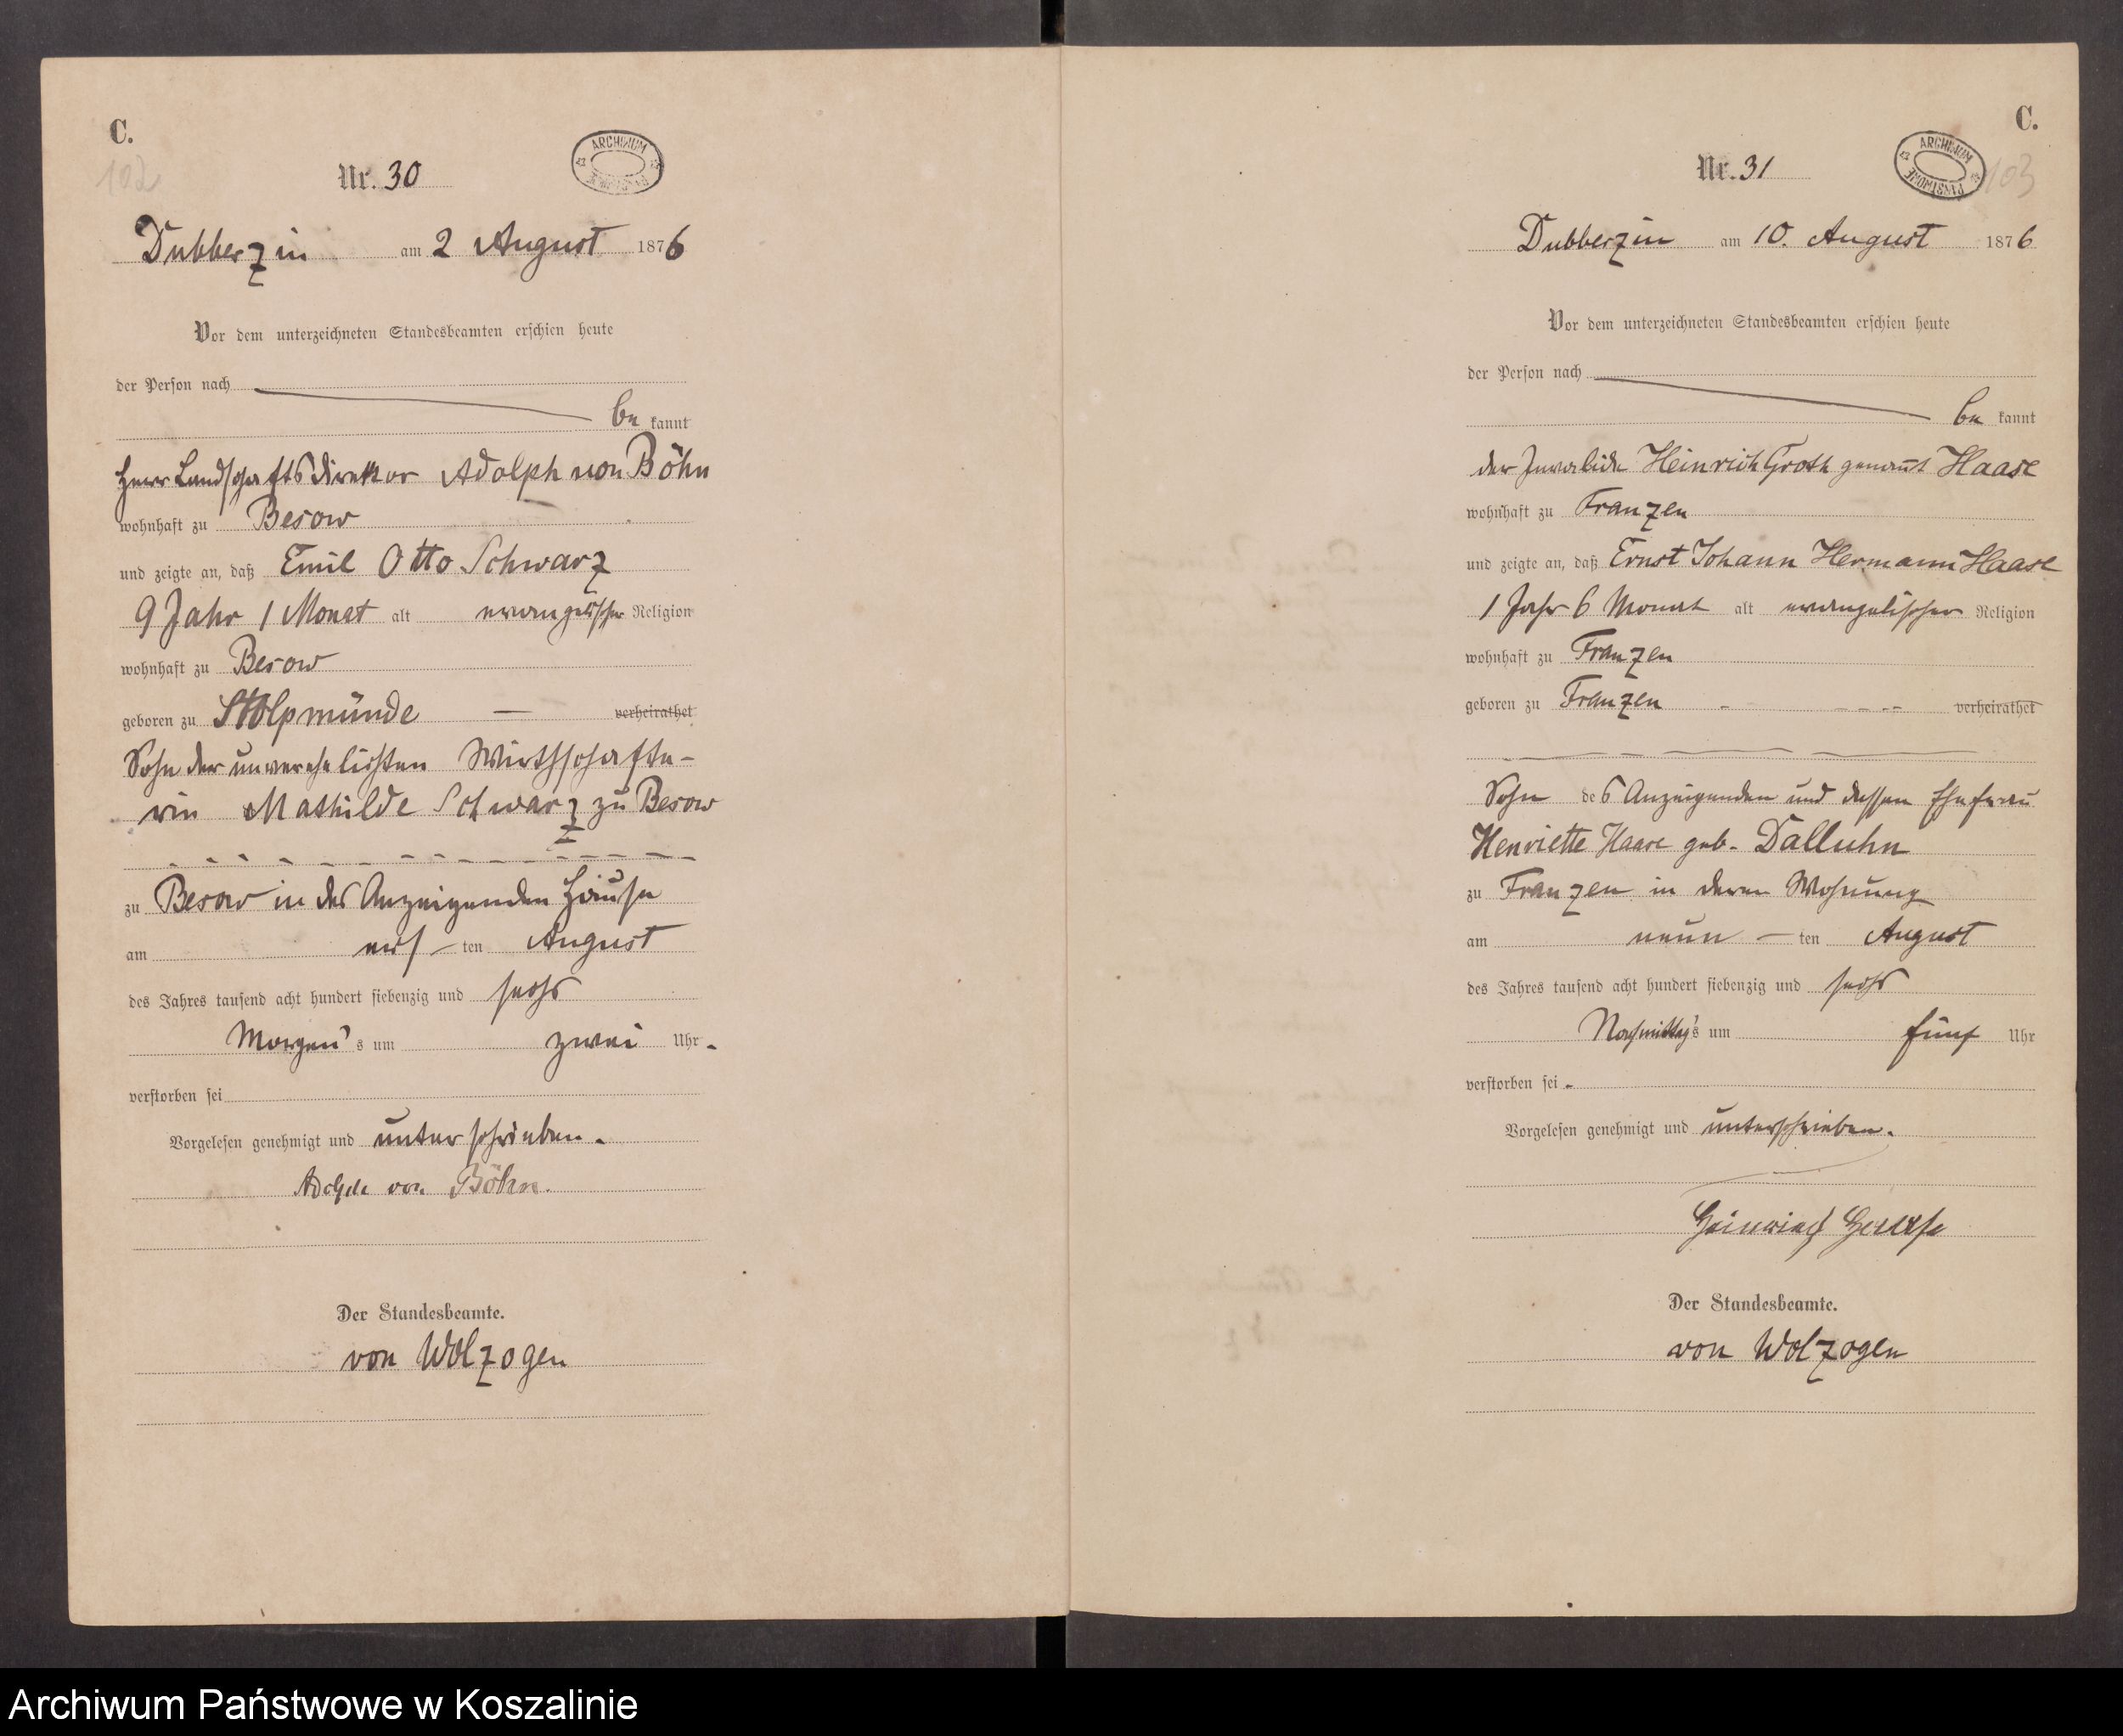 C.
102
Nr. 30
ARCHIWUM
Dubberzin am 2 August 1876
Vor dem unterzeichneten Standesbeamten erschien heute
der Person nach
be kannt
Herr Landschaftsdirektor Adolph von Böhn
wohnhaft zu Besow
und zeigte an, daß Emil Otto Schwarz
9 Jahr 1 Monat alt evangelischer Religion
wohnhaft zu Besow
geboren zu Stolpmünde — verheirathet
Sohn der unverehelichten Wirthschafte-
rin Mathilde Schwarz zu Besow
zu Besow in des Anzeigenden Hause
am ers – ten August
des Jahres tausend acht hundert siebenzig und sechs
Morgen's um zwei Uhr
verstorben sei
Vorgelesen genehmigt und unterschrieben.
von Böhn.
Der Standesbeamte.
von Wolzogen
C.
103
Nr. 31
ARCHIWUM PAŃSTWOWE
Dubberzin am 10. August 1876
Vor dem unterzeichneten Standesbeamten erschien heute
der Person nach
be kannt
der Invalide Heinrich Groth genannt Haase
wohnhaft zu Franzen
und zeigte an, daß Ernst Johann Hermann Haase
1 Jahr 6 Monat alt evangelischer Religion
wohnhaft zu Franzen
geboren zu Franzen verheirathet
Sohn des Anzeigenden und dessen Ehefrau
Henriette Haase geb. Dalluhn
zu Franzen in deren Wohnung
am neun – ten August
des Jahres tausend acht hundert siebenzig und sechs
Nachmittag's um fünf Uhr
verstorben sei.
Vorgelesen genehmigt und unterschrieben.
Heinrich Haase
Der Standesbeamte.
von Wolzogen
Archiwum Państwowe w Koszalinie